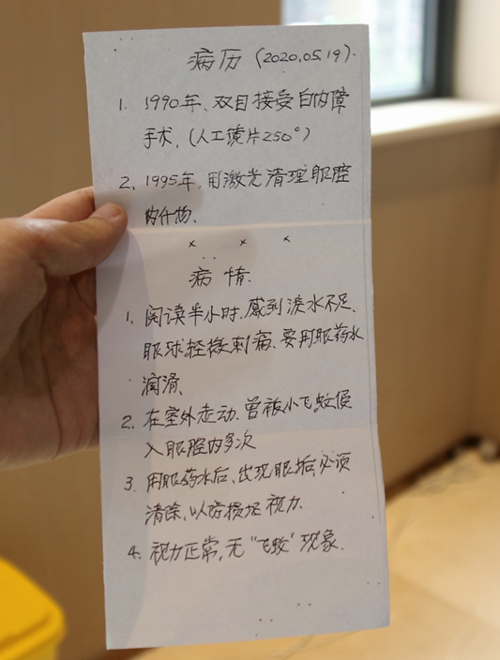 病历(2020.05.19).
1. 1990年、双目接受白内障
手术.(人工镜片250°)
2. 1995年.用激光清理眼腔
内什物.
× × ×
病情.
1. 阅读半小时.感到淚水不足、
眼球轻微刺痛.要用眼药水
润滑、
2. 在室外走动.曾被小飞蚊侵
入眼腔内多次
3. 用眼药水后,出现眼垢,必须
清除,以防损坏视力.
4. 视力正常,无“飞蚊”现象.